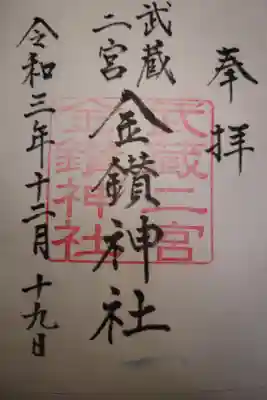 奉拝
武蔵
二宮
金鑚神社
武蔵二宮
金鑚神社
令和三年十二月十九日